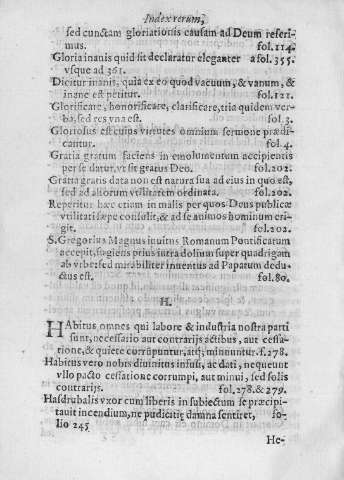 Index rerum,
sed cunctam gloriationis causam ad Deum referi-
mus. fol.114.
Gloria inanis quid sit declaratur eleganter a fol.355.
vsque ad 361.
Dicitur inanis, quia ex eo quod vacuum, & vanum, &
inane est petitur. fol.121.
Glorificare, honorificare, clarificare, tria quidem ver-
ba, sed res vna est. fol.3.
Gloriosus est cuius virtutes omnium sermone prædi-
cantur. fol.4.
Gratia gratum faciens in emolumentum accipientis
per se datur, vt sit gratus Deo. fol.202.
Gratia gratis data non est natura sua ad eius in quo est,
sed ad aliorum vtilitatem ordinata. fol.202.
Reperitur hæc etiam in malis per quos Deus publicæ
vtilitati sæpe consulit, & ad se animos hominum eri-
git. fol.202.
S. Gregorius Magnus inuitus Romanum Pontificatum
accepit, fugiens prius intra dolium super quadrigam
ab vrbe: sed mirabiliter inuentus ad Papatum dedu-
ctus est. fol.80.
H.
HAbitus omnes qui labore & industria nostra parti
sunt, necessario aut contrarijs actibus, aut cessa-
tione, & quiete corrūpuntur, atq; minuuntur. f.278.
Habitus vero nobis diuinitus infusi, ac dati, nequeunt
vllo pacto cessatione corrumpi, aut minui, sed solis
contrarijs. fol.278.& 279.
Hasdrubalis vxor cum liberis in subiectum se præcipi-
tauit incendium, ne pudicitię damna sentiret, fo-
lio 245
He-